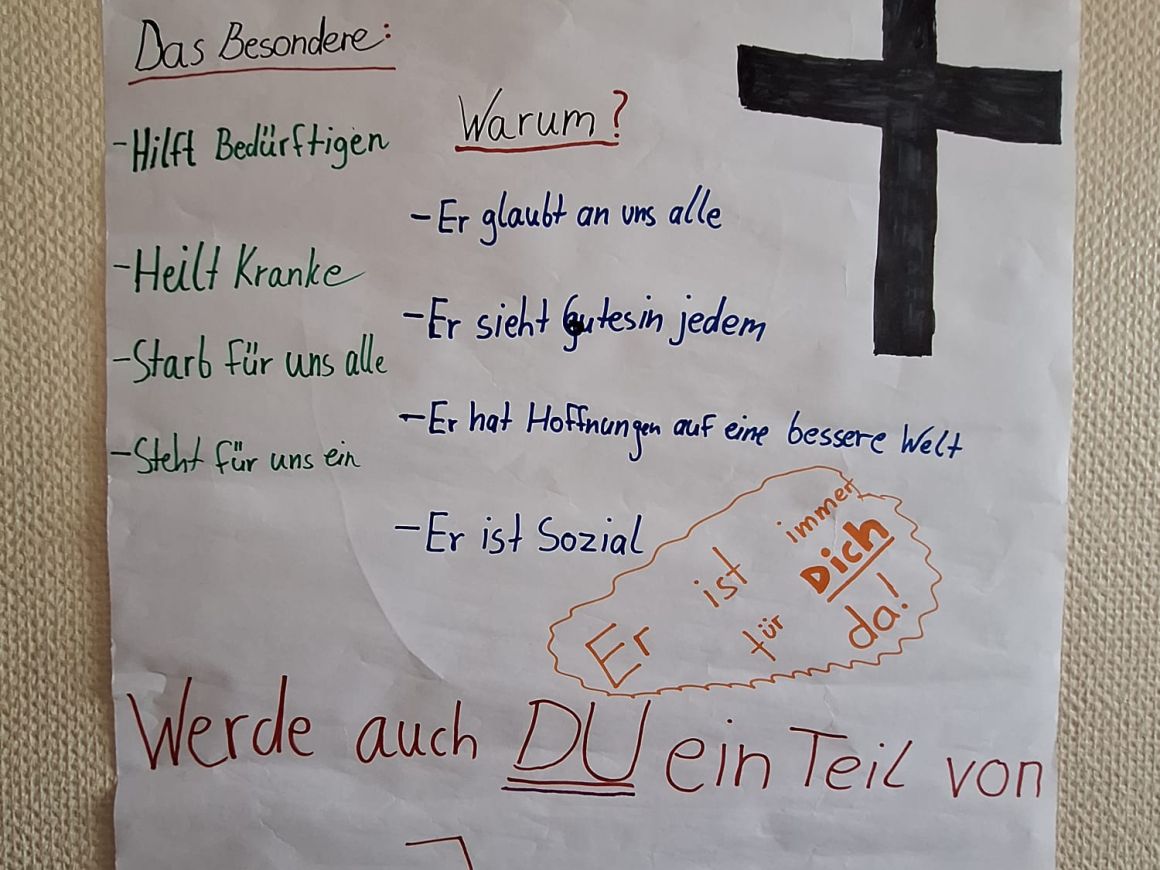 Das Besondere:
-Hilft Bedürftigen
-Heilt Kranke
-Starb für uns alle
-Steht für uns ein
Warum?
-Er glaubt an uns alle
-Er sieht Gutes in jedem
-Er hat Hoffnungen auf eine bessere Welt
-Er ist Sozial
Er ist immer
für Dich da!
Werde auch DU ein Teil von